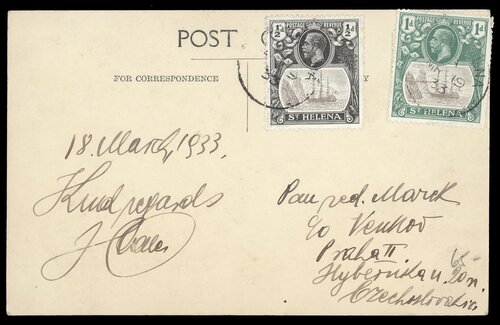 POST
FOR CORRESPONDENCE
½d POSTAGE REVENUE ½d
ST HELENA
1d POSTAGE & REVENUE 1d
ST HELENA
18. March, 1933.
Kind regards
Pan red. Marek
c/o Venkov
Praha II
Hybernska ul. 20 n.
Czechoslovakia